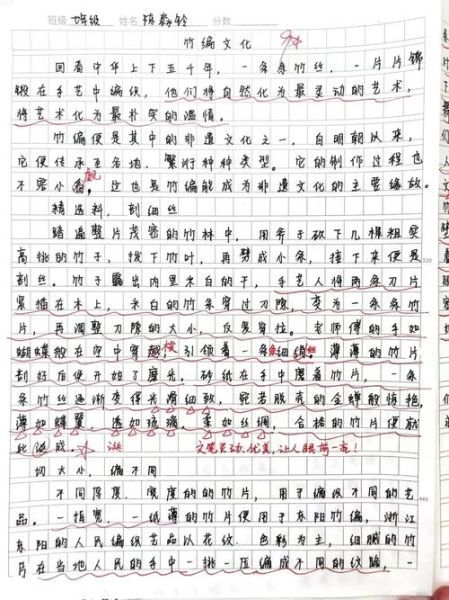 班级 七年级 姓名 分数
竹编文化
回看中华上下五千年，一条条竹丝，一片片锦
缎在手艺中编织，他们将自然化为最灵动的艺术，
将艺术化为最朴实的温情。
竹编便是其中的非遗文化之一，自明朝以来，
它便传承至各地，繁衍种种类型。它的制作过程也
不容小觑，这也是竹编能成为非遗文化的主要缘故。
精选料，刮细丝
踏遍整片茂密的竹林中，用斧子砍下几棵粗实
高挑的竹子，拔下竹叶，再劈成小条，接下来便是
刮丝。竹子露出内里米白的干，手艺人将两条刀片
紧插在木上，米白的竹条穿过刀隙，变为一条条竹
片，再调整刀隙的大小，反复穿拉。老师傅的手如
蝴蝶般在空中穿梭，引领着一条细细，薄薄的竹片
刮好后便开始了磨光，砂纸在手中磨着竹片，一条
条竹丝逐渐变得光滑细致，宛若脱壳的金蝉般惊艳，
薄如蝉翼，透如琉璃，柔如丝绸，合格的竹片便就
此诞成。 诞
文笔灵动，优美，让人眼前一亮！
切大小，编不同
不同厚度、宽度的的竹片，用于编织不同的艺
品。一指宽，一纸薄的竹片便用于东阳竹编，浙江
东阳的人民编织艺品以花纹、色彩为主，细腻的竹
片在当地人民的手中一排一压编成不同的纹路，一